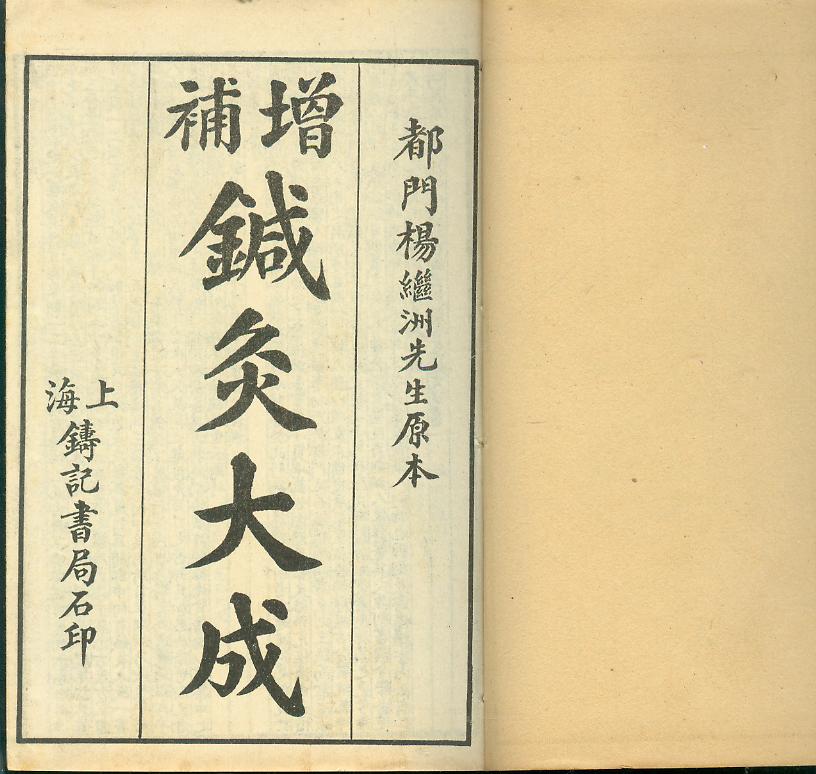 都門楊繼洲先生原本
增補
鍼灸大成
上海
鑄記書局石印